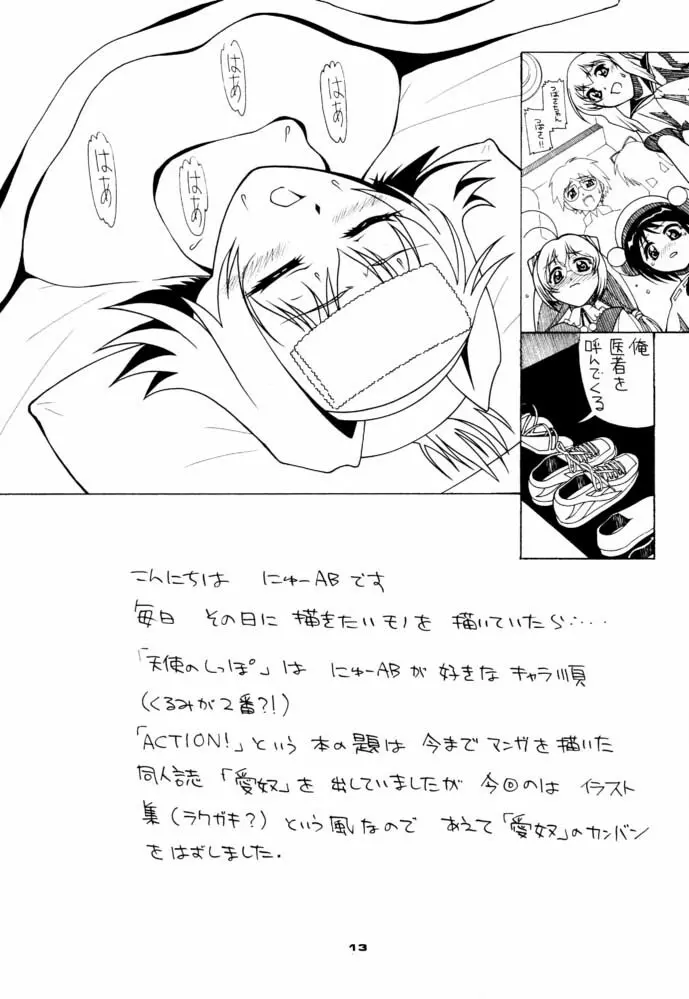 つばさちゃん
つばさ!!
はあ
はあ
はあ
はあ
俺
医者を
呼んでくる
こんにちは にゅーABです
毎日 その日に 描きたいモノを 描いていたら・・・・・
「天使のしっぽ」は にゅーABが 好きな キャラ順
(くるみが2番?!)
「ACTION!」という 本の題は 今まで マンガを 描いた
同人誌 「愛奴」を 出していましたが 今回のは イラスト
集(ラクガキ?) という風なので あえて「愛奴」のカンバン
をはずしました.
13